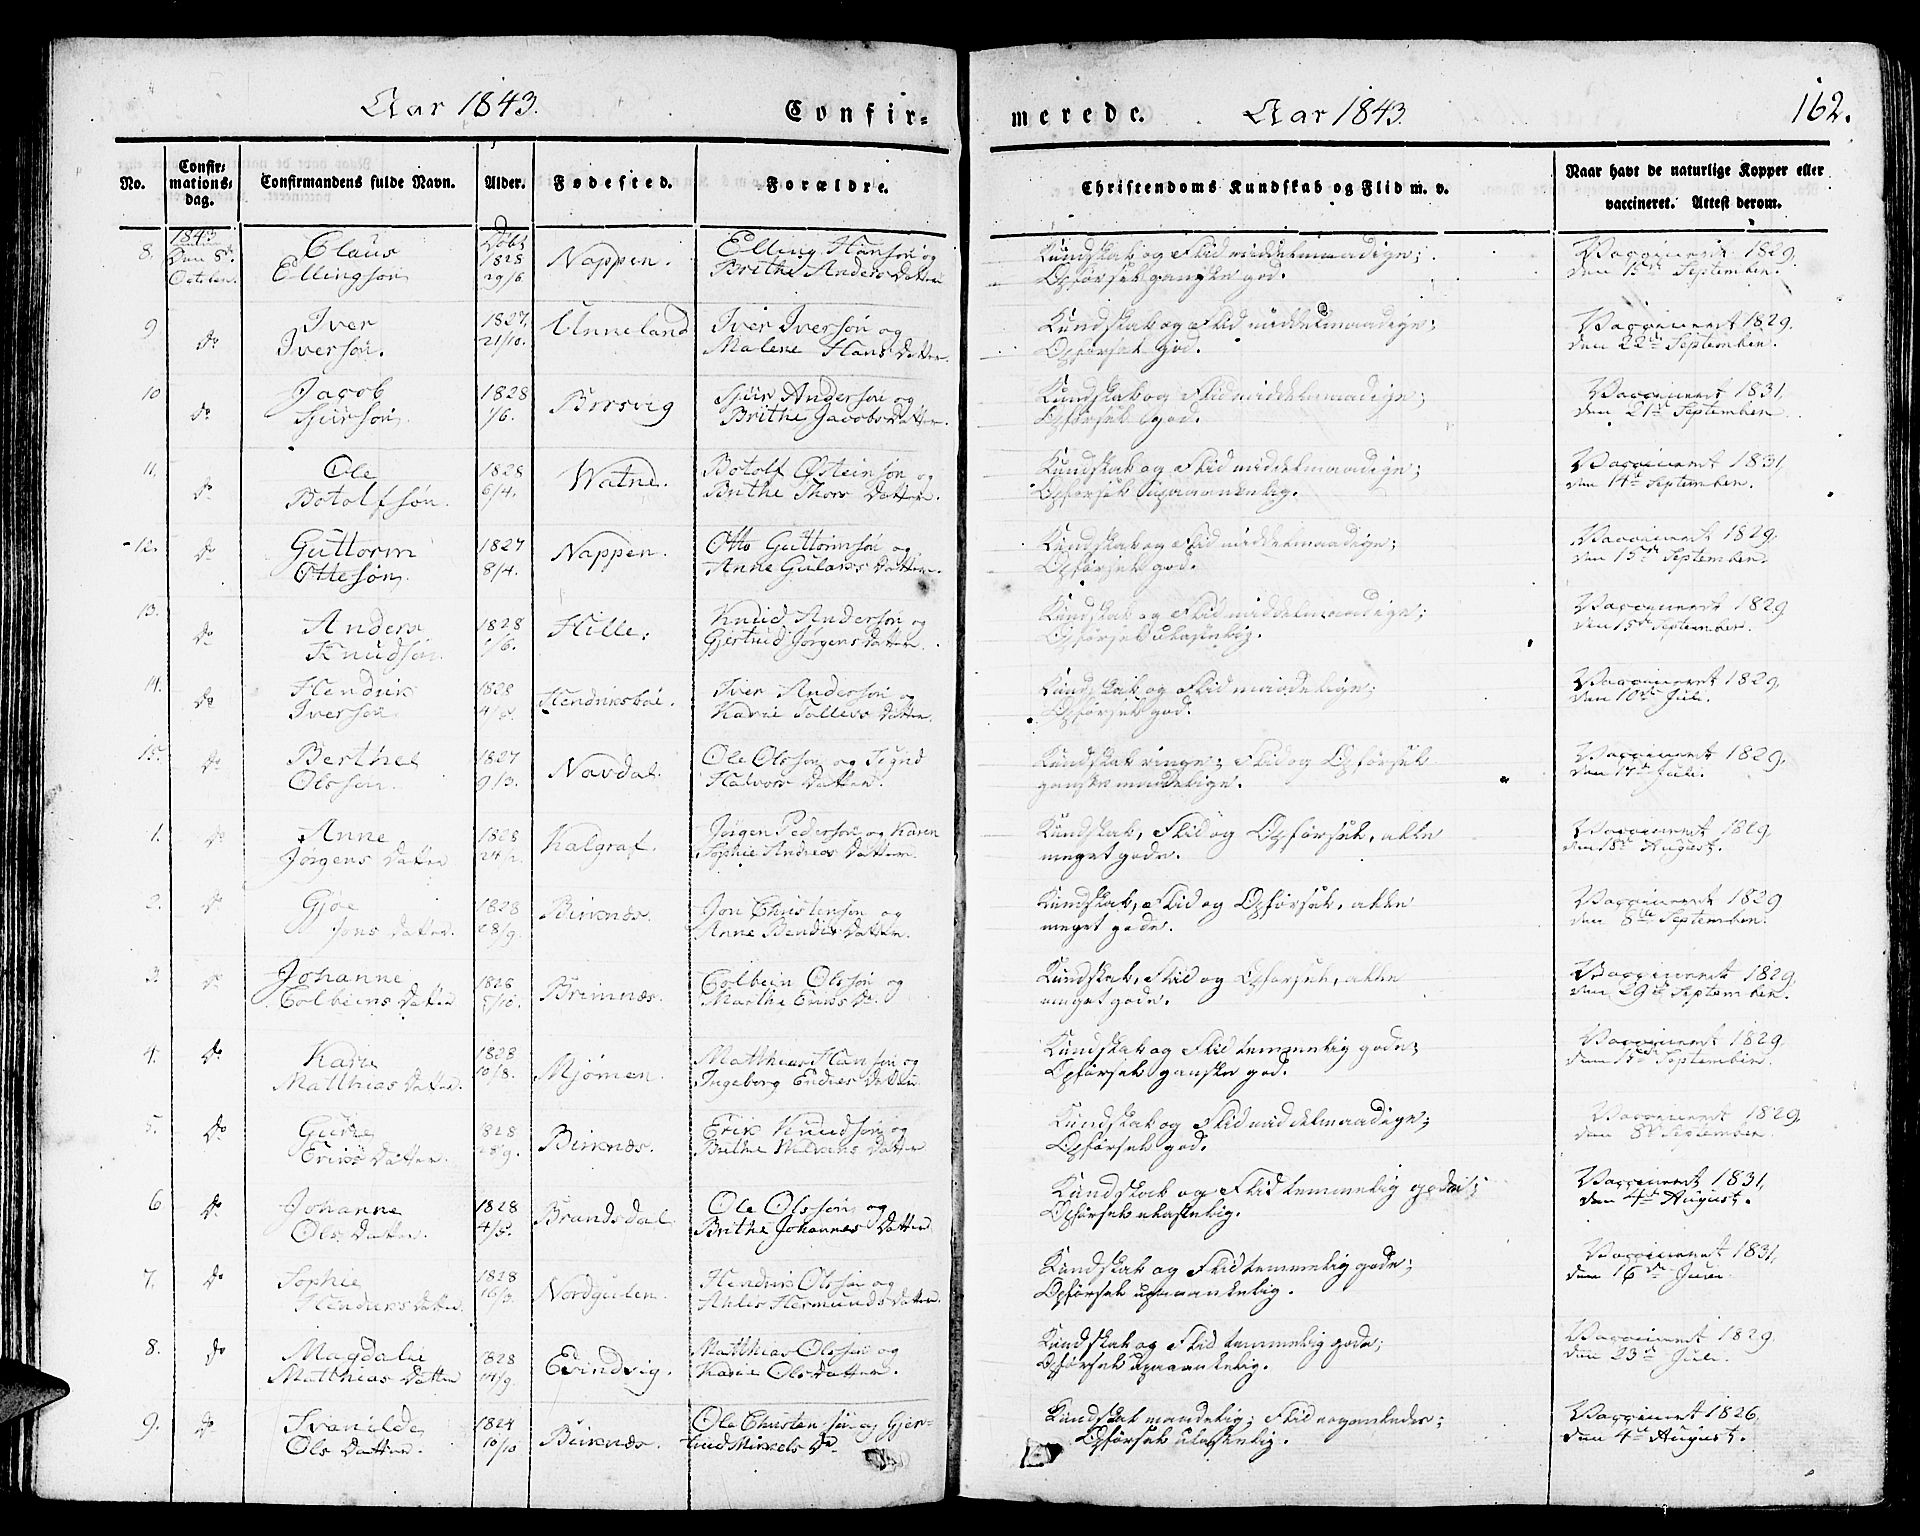 Aar 1843. Confir-
merede. Aar 1843. 162.
No. Confir-mations-dag. Confirmandens fulde Navn. Alder. Fødested. Forældre. Christendoms Kundskab og Flid m. v. Naar havt de naturlige Kopper eller vaccineret. Attest derom.
8. 1843 Den 8de October Claus Døbt 1828 Nappen. Elling Hansøn og Kundskab og Flid middelmaadige; Vaccineret 1829,
Ellingsøn 29/6 Brithe Anders Datter Opførsel ganske god. den 15de September.
9 do Iver 1827, Unneland Iver Iversøn og Kundskab og Flid middelmaadige; Vaccineret 1829.
Iversøn. 21/10. Malene Hans Datter. Opførsel god. den 22de September.
10 do Jacob 1828 Brosvig Sjur Andersøn og Kundskab og Flid middelmaadige; Vaccineret 1831,
Sjursøn. 1/6. Brithe Jacobs Datter. Opførsel god. den 21de September.
11. do Ole 1828 Watne. Botolf Østeinsøn og Kundskab og Flid middelmaadige; Vaccineret 1831,
Botolfsøn. 6/4. Brithe Thors Datter. Opførsel upaaankelig. den 14de September.
12. do Guttorm 1827 Nappen. Otto Guttormsøn og Kundskab og Flid middelmaadige; Vaccineret 1829.
Ottesøn. 8/4. Anne Datter. Opførsel god. den 15de September.
13. do Anders 1828 Hille. Knud Andersøn og Kundskab og Flid middelmaadige; Vaccineret 1829
Knudsøn. 1/6. Gjertrud Jørgens Datter. Opførsel ulastelig. den 15de September.
14. do Hendrik 1828 Hendriksbøe. Iver Andersøn og Kundskab og Flid maadelige; Vaccineret 1829,
Iversøn Karie Datter. Opførsel god. den 10de Juli.
15. do Berthel 1827 Navdal. Ole Olssøn og Signd Kundskab ringe; Flid og Opførsel Vaccineret 1829,
Olssøn. 9/3. Halvors Datter. ganske maadelige. den 17de Juli.
1. do Anne 1828 Kalgraf. Jørgen Pedersøn og Karen Kundskab, Flid og Opførsel, alle Vaccineret 1829,
Jørgens Datter Sophie Andreas Datter. meget gode. den 18de August.
2. do Gjøe 1828 Birknæs. Jon Christensøn og Kundskab, Flid og Opførsel, alle Vaccineret 1829
Jons Datter. 28/9. Anne Bendix Datter. meget gode. den 8de September.
3. do Johanne 1828 Brimnæs. Colbein Olssøn og Kundskab, Flid og Opførsel, alle Vaccineret 1829,
Colbeins Datter 5/10. Marthe Enos Dr. meget gode. den 29de September.
4. do Karie 1828 Mjømen. Matthias Hansøn og Kundskab og Flid temmelig gode; Vaccineret 1829,
Matthias Datter. 10/8. Ingeborg Endres Datter. Opførsel ganske god. den 15de September.
5. do Gurie 1828 Birknæs. Erik Knudsøn og Kundskab og Flid middelmaadige; Vaccineret 1829,
Eriks Datter. 28/9. Brithe Datter. Opførsel god. den 8de September.
6 do Johanne 1828 Brandsdal. Ole Olssøn og Kundskab og Flid temmelig gode; Vaccineret 1831,
Ols Datter. 4/5. Brithe Johannes Datter. Opførsel ulastelig. den 4de August.
7. do Sophie 1828 Nordgulen. Hendrik Olssøn og Kundskab og Flid temmelig gode; Vaccineret 1831,
Hendriks Datter. 16/3. Ahlis Hermunds Datter. Opførsel upaaankelig. den 16de Juni.
8. do Magdalie 1828 Evindvig. Matthias Olssøn og Kundskab og Flid temmelig gode; Vaccineret 1829,
Matthias Datter 14/9. Karie Ols Datter. Opførsel upaaankelig. den 23de Juli.
9. do Svanilde 1824 Birknæs. Ole Christensøn og Gjer- Kundskab maadelig; Flid Vaccineret 1826,
Ols Datter. 10/10 trud Mikkels Dr. Opførsel ulastelig. den 4de August.